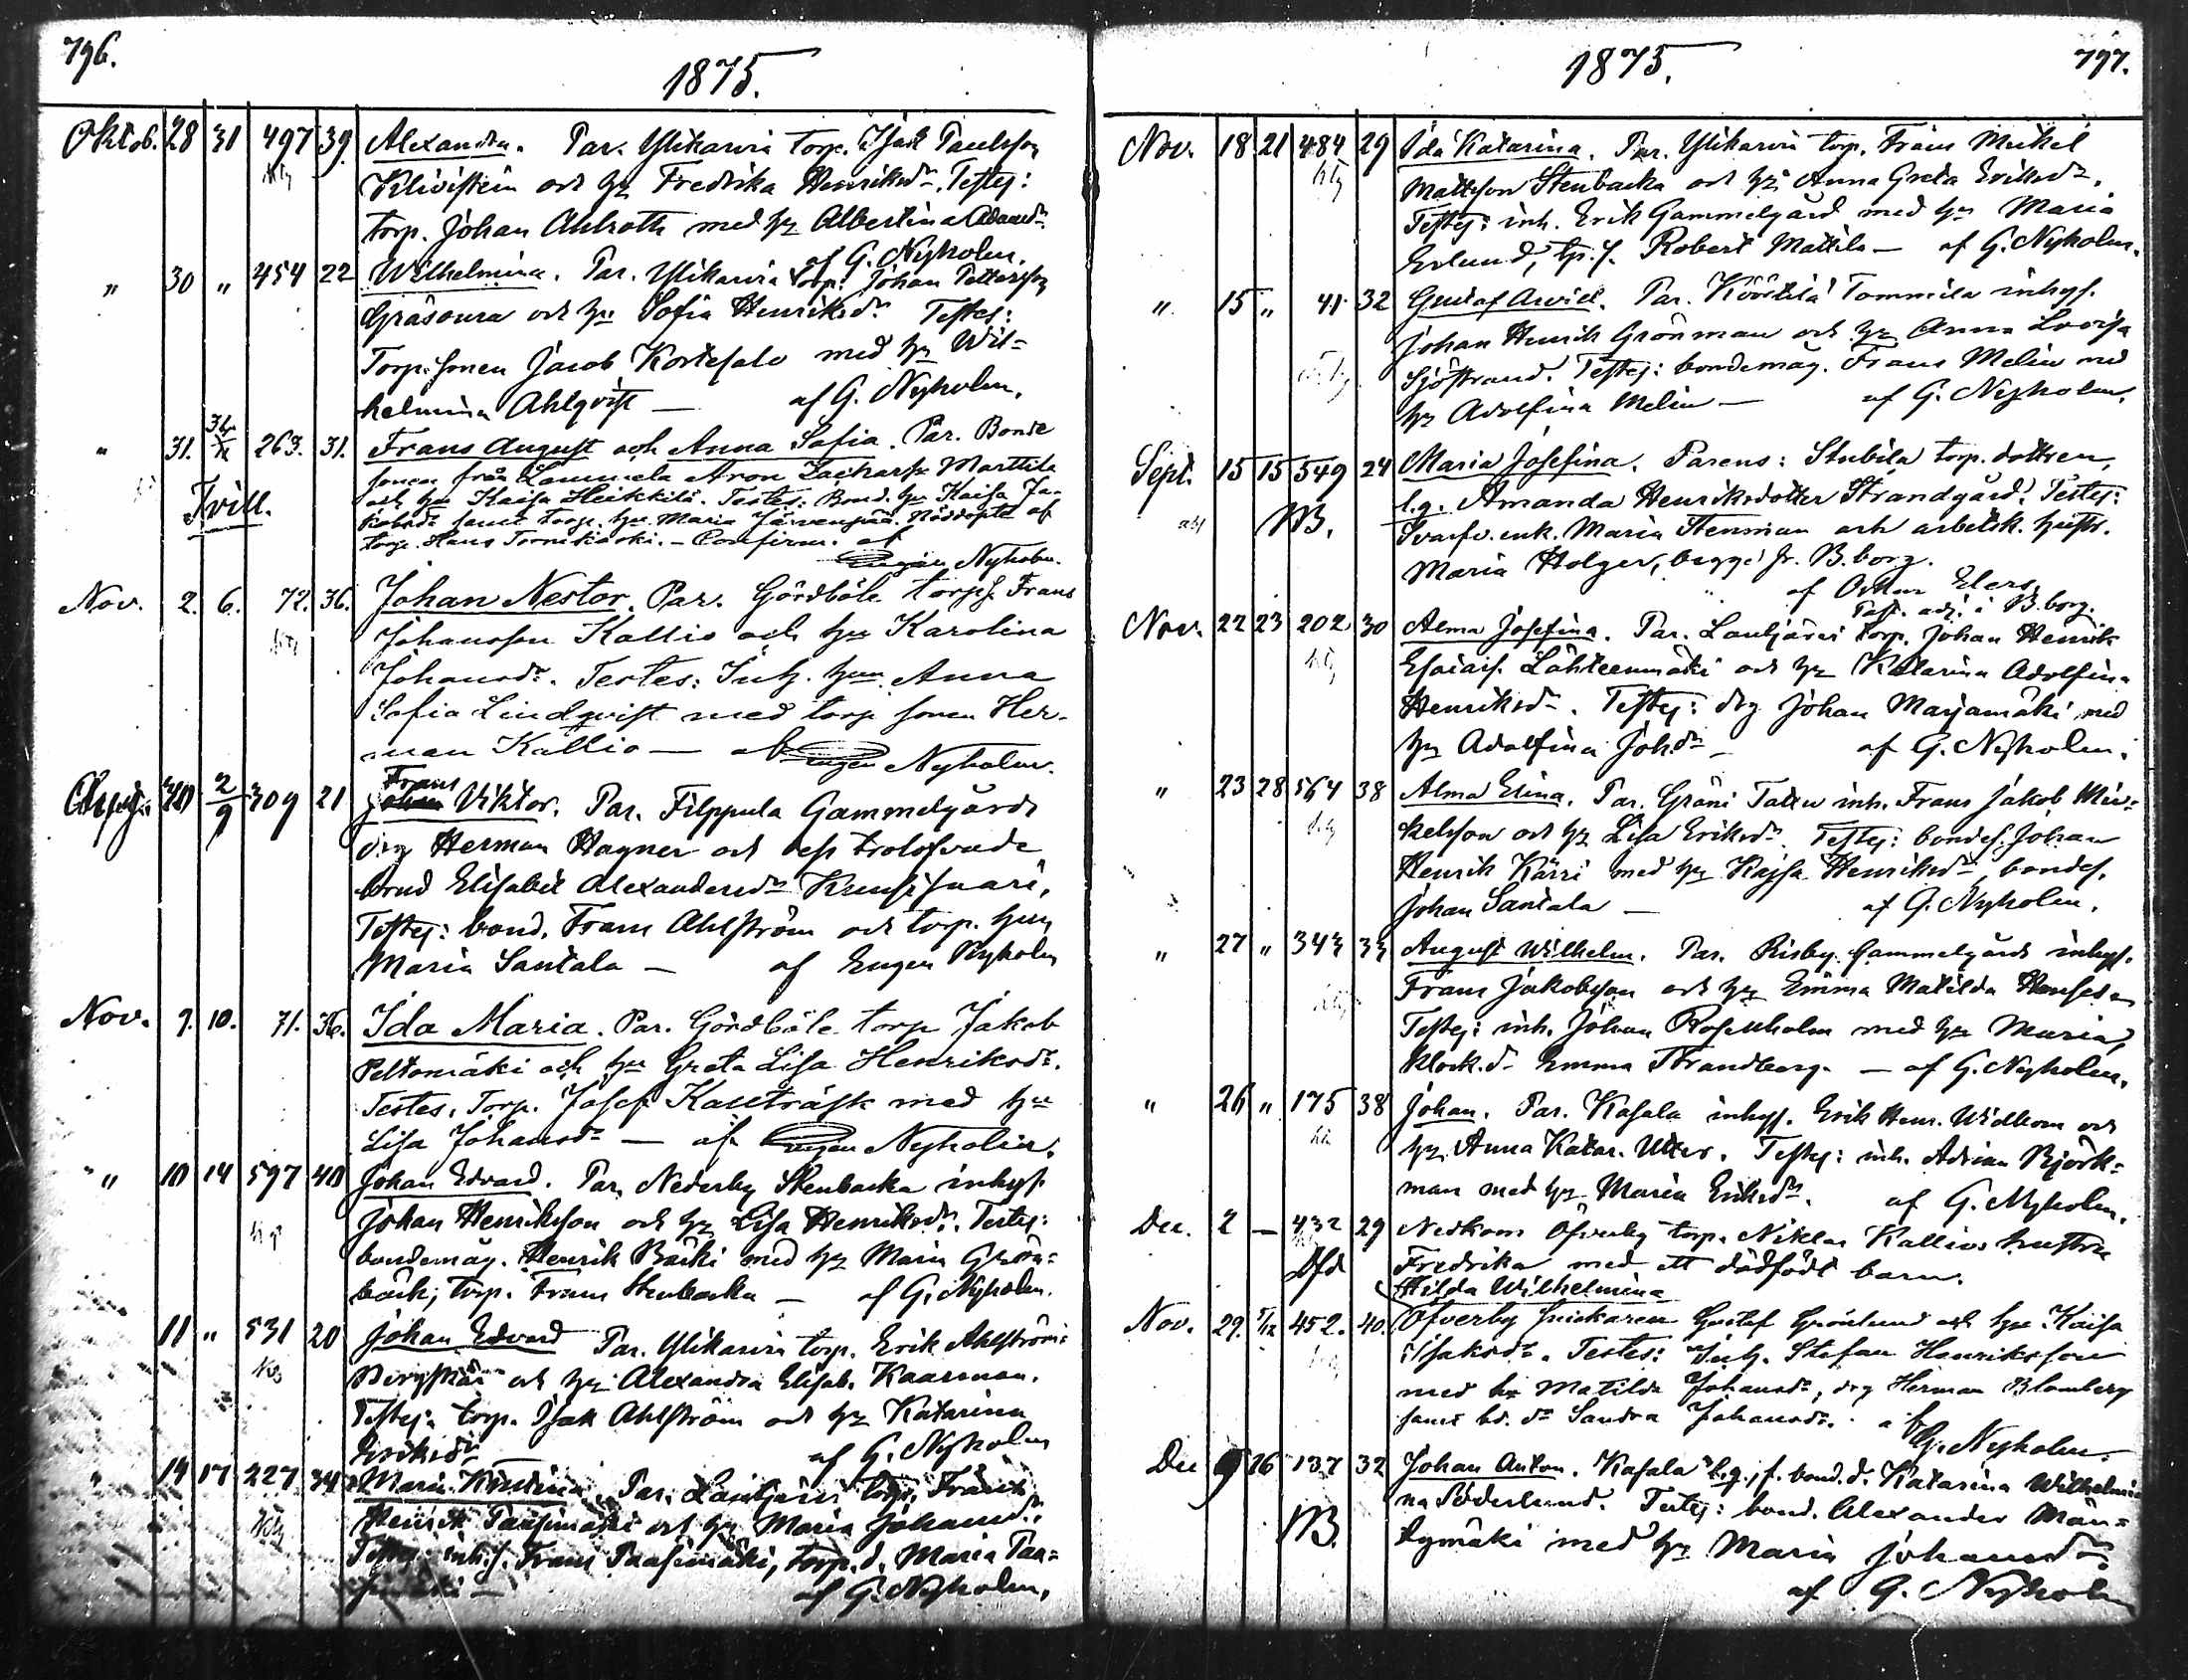 796.
1875.
Oktob. 28 31 497 39. Alexandra. Par. Ylikarvia torp. Isak Paulsson
Klivistein och hu Fredrika Henriksdr. Testes:
torp. Johan Ahlroth med hu Albertina Adamdr.
af G. Nyholm.
" 30 " 454 22 Wilhelmina. Par. Ylikarvia torp. Johan Pettersson
Gräsoura och hu Sofia Henriksdr Testes:
Torp. sonen Jacob Kortesalo med hu Wil=
helmina Ahlqvist — af G. Nyholm.
" 31. 263. 31. Frans August och Anna Sofia. Par. Bonde
sonen från Lammela Aron Zacharss. Marttila
Tvill. och hu Kaisa Heikkilä. Testes: Bond. hu Kaisa Ja-
kobsdr samt torp. hu Maria Järvenpää. Nöddöpta af
torp. Hans Tornikoski. — Confirm. af
Eugen Nyholm.
Nov. 2. 6. 72. 36. Johan Nestor. Par. Gördböle torps. Frans
Johansson Kallio och hu Karolina
Johansdr. Testes: Inh. hun Anna
Sofia Lindqvist med torp. sonen Her-
man Kallio — af Eugen Nyholm.
2/9 309 21 Frans
Johan Viktor. Par. Filppula Gammelgårds
drg Herman Hagner och dess trolofvade
brud Elisabet Alexandersdr
Testes: bond. Frans Ahlström och torp. hun
Maria Santala — af Eugen Nyholm
Nov. 9. 10. 71. 36. Ida Maria. Par. Gördböle torp Jakob
Peltomäki och hu Greta Lisa Henriksdr.
Testes. Torp. Josef Kallträsk med hu
Lisa Johansdr — af Eugen Nyholm.
" 10 14 597 40 Johan Edvard. Par. Nederby Stenbacka inhys.
Johan Henriksson och hu Lisa Henriksdr. Testes:
bondemåg. Henrik Bäcki med hu Maria Grön=
bäck; torp. Frans Stenbacka — af G. Nyholm.
11 " 531 20 Johan Edvard Par. Ylikarvia torp. Erik Ahlström
Bergskär och hu Alexandra Elisab. Kaarman.
Testes: torp. Isak Ahlström och hu Katarina
Eriksdr — af G. Nyholm
" 14 17 227 34 Maria Kristina. Par. Lautjärvi torp. Frans
Henrik Paasimäki och hu Maria Johansdr.
Testes: inh. s. Frans Paasimäki, torp. d. Maria Paa=
simäki — af G. Nyholm.
1875.
797.
Nov. 18 21 484 29 Ida Katarina. Par. Ylikarvia torp. Frans Mickel
Mattsson Stenbacka och hu Anna Greta Eriksdr.
Testes: inh. Erik Gammelgård med hu Maria
Erlund, tp. s. Robert Mattila — af G. Nyholm.
" 15 " 41 32 Gustaf Arvid. Par. Köörtilä Tommila inhys.
Johan Henrik Grönman och hu Anna Lovisa
Sjöstrand. Testes: bondemåg. Frans Melin med
hu Adolfina Melin — af G. Nyholm.
Sept. 15 15 549 24 Maria Josefina. Parens: Stubila torp. dottren,
l.g. Amanda Henriksdotter Strandgård. Testes:
NB. Svarfv. enk. Maria Stenman och arbetsk. hustr.
Maria Holger, begge fr. B.borg.
af Oskar Elers,
Past. adj. i B.borg.
Nov. 22 23 202 30 Alma Josefina. Par. Lautjärvi torp. Johan Henrik
Esaiass. Lähteenmäki och hu Katarina Adolfina
Henriksdr. Testes: drg Johan Marjamäki med
hu Adolfina Johsdr — af G. Nyholm.
" 23 28 564 38 Alma Elina. Par. Gräni inh. Frans Jakob Mic=
kelsson och hu Lisa Eriksdr. Testes: bondes. Johan
Henrik Kärri med hu Kajsa Henriksdr, bondes.
Johan Santala — af G. Nyholm.
" 27 " 343 33 August Wilhelm. Par. Risby Gammelgårds inhys.
Frans Jakobsson och hu Emma Matilda
Testes: inh. Johan Rosenholm med hu Maria,
klock. d. Emma Strandberg. — af G. Nyholm.
" 26 " 175 38 Johan. Par. Kasala inhys. Erik Henr. Widbom och
hu Anna Katar. Uters. Testes: inh. Adrian Björk=
man med hu Maria Eriksdr. af G. Nyholm.
Dec. 2 — 432 29 Nedkom Öfverby torp. Niklas Kallios hustru
Dfd Fredrika med ett dödfödt barn.
Hilda Wilhelmina
Nov. 29. 5/12 452. 40. Öfverby snickaren Gustaf Grönlund och hu Kaisa
Isaksdr. Testes: Inh. Stefan Henriksson
med hu Matilda Johansdr, drg Herman Blomberg
samt bd. dr Sandra Johansdr. af
G. Nyholm.
Dec 9 26 137 32 Johan Anton. Kasala l.g., f. bond. d. Katarina Wilhelmi
na Söderlund. Testes: bond. Alexander Män=
NB. tymäki med hu Maria Johansdr
af G. Nyholm